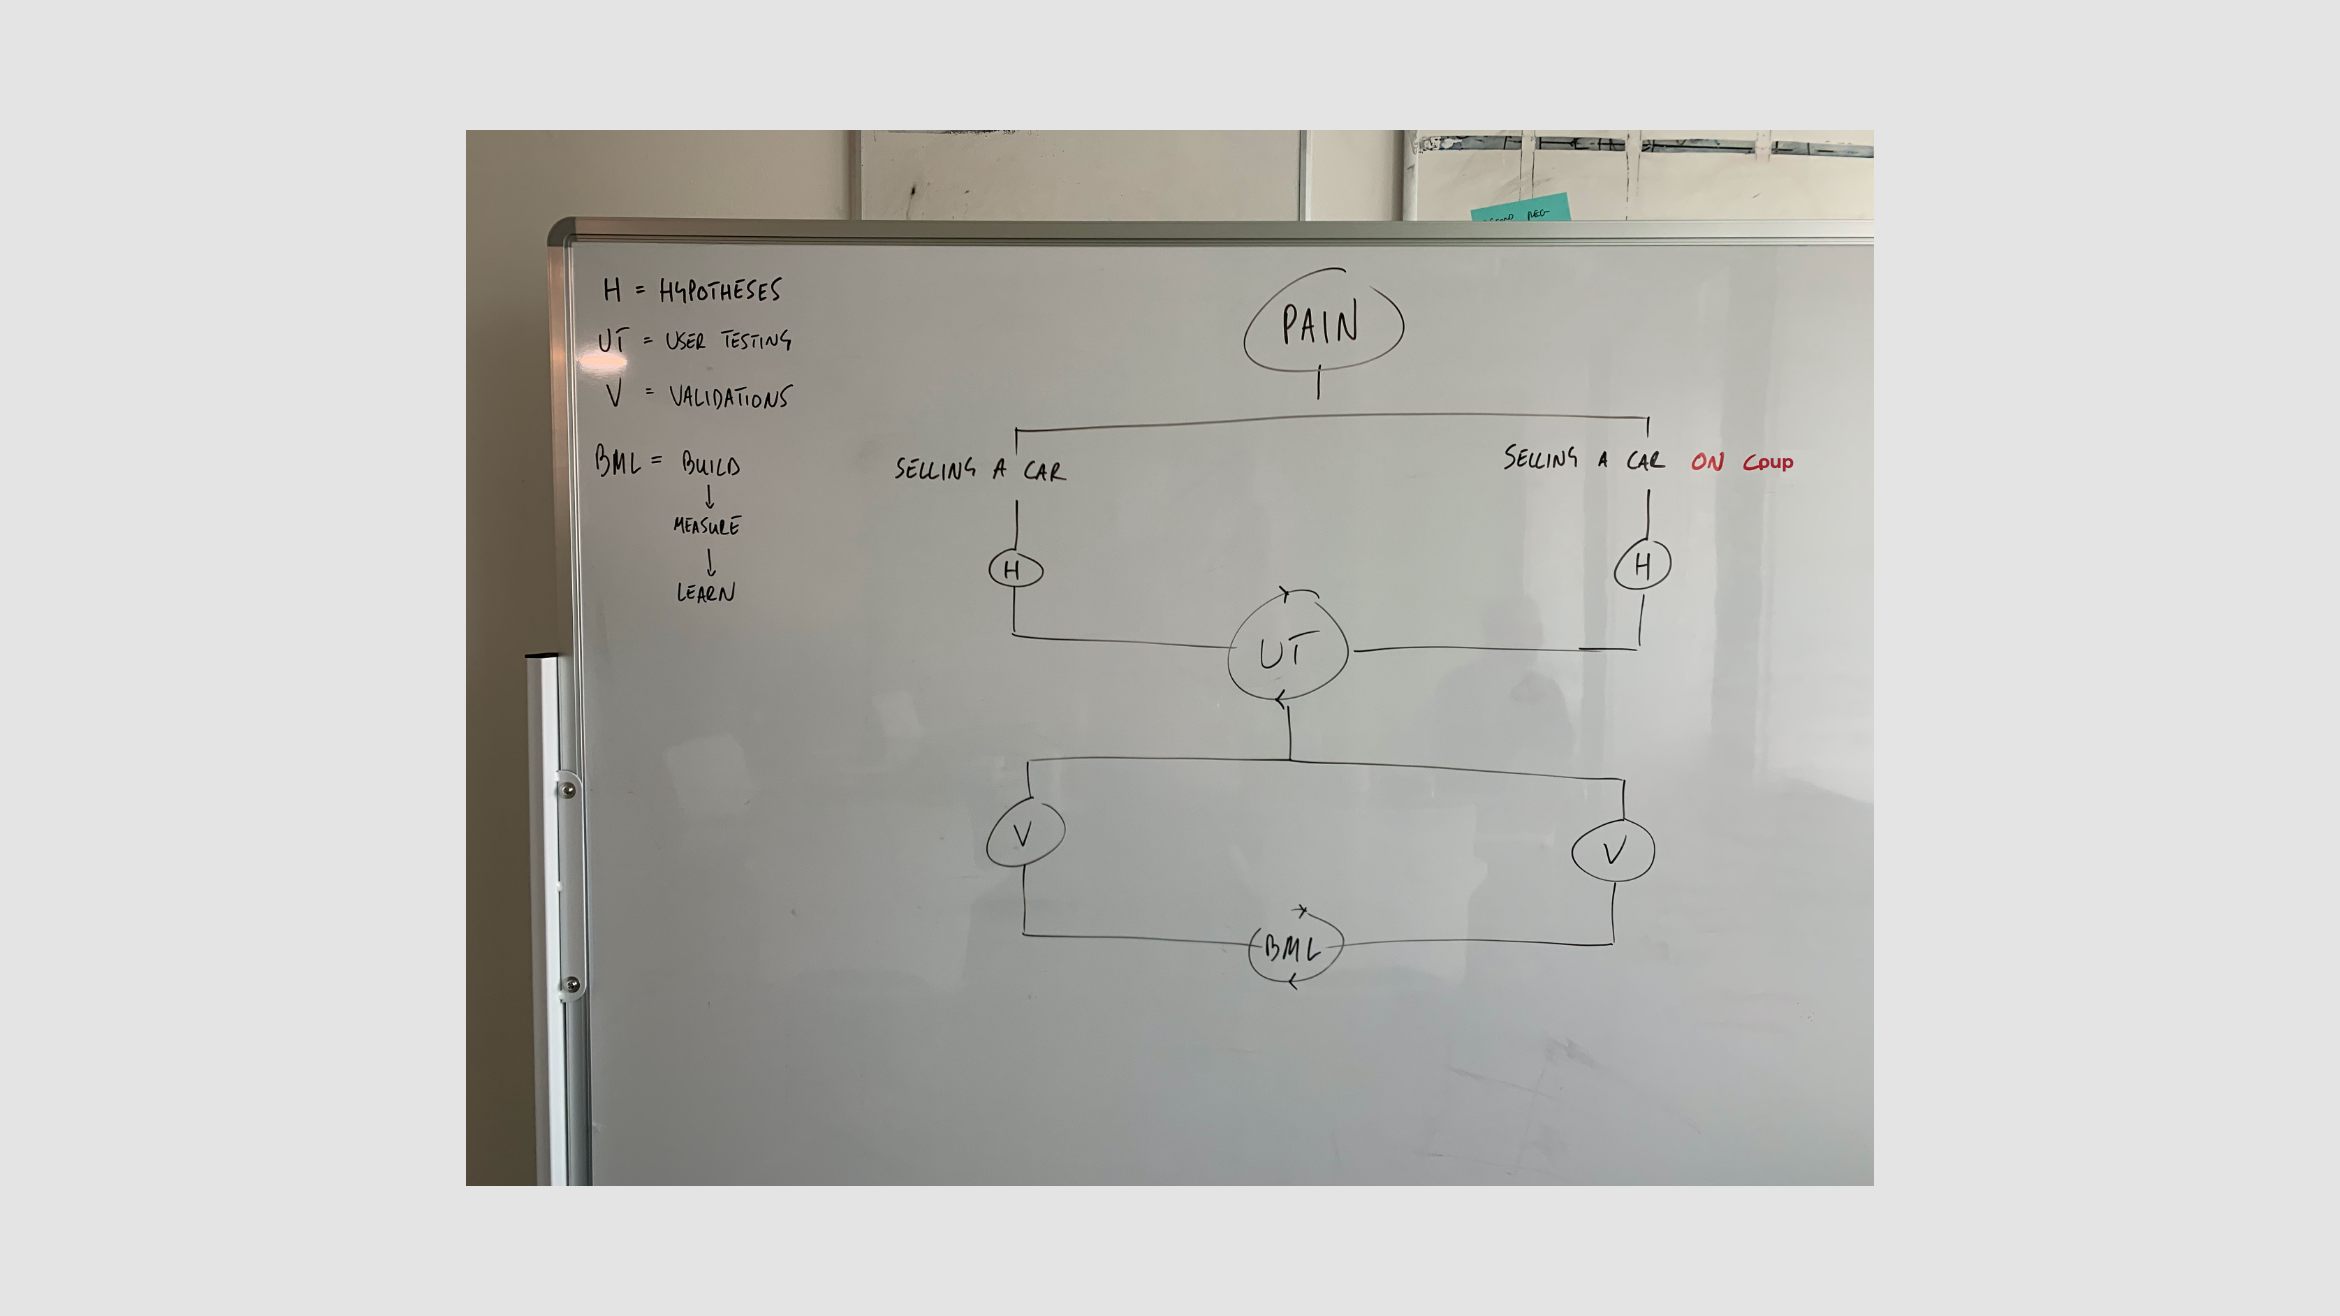 REG-
H = HYPOTHESES
UT = USER TESTING
V = VALIDATIONS
BML = BUILD
↓
MEASURE
↓
LEARN
PAIN
SELLING A CAR
SELLING A CAR ON Coup
H
H
UT
V
V
BML